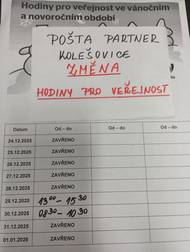 Hodiny pro veřejnost ve vánočním
a novoročním období
POŠTA PARTNER
KOLEŠOVICE
ZMĚNA
HODINY PRO VEŘEJNOST
Datum Od – do Od – do Od – do
24.12.2025 ZAVŘENO
25.12.2025 ZAVŘENO
26.12.2025 ZAVŘENO
27.12.2025 ZAVŘENO
28.12.2025 ZAVŘENO
29.12.2025 13⁰⁰ – 15³⁰
30.12.2025 08³⁰ – 10³⁰
31.12.2025 ZAVŘENO
01.01.2026 ZAVŘENO